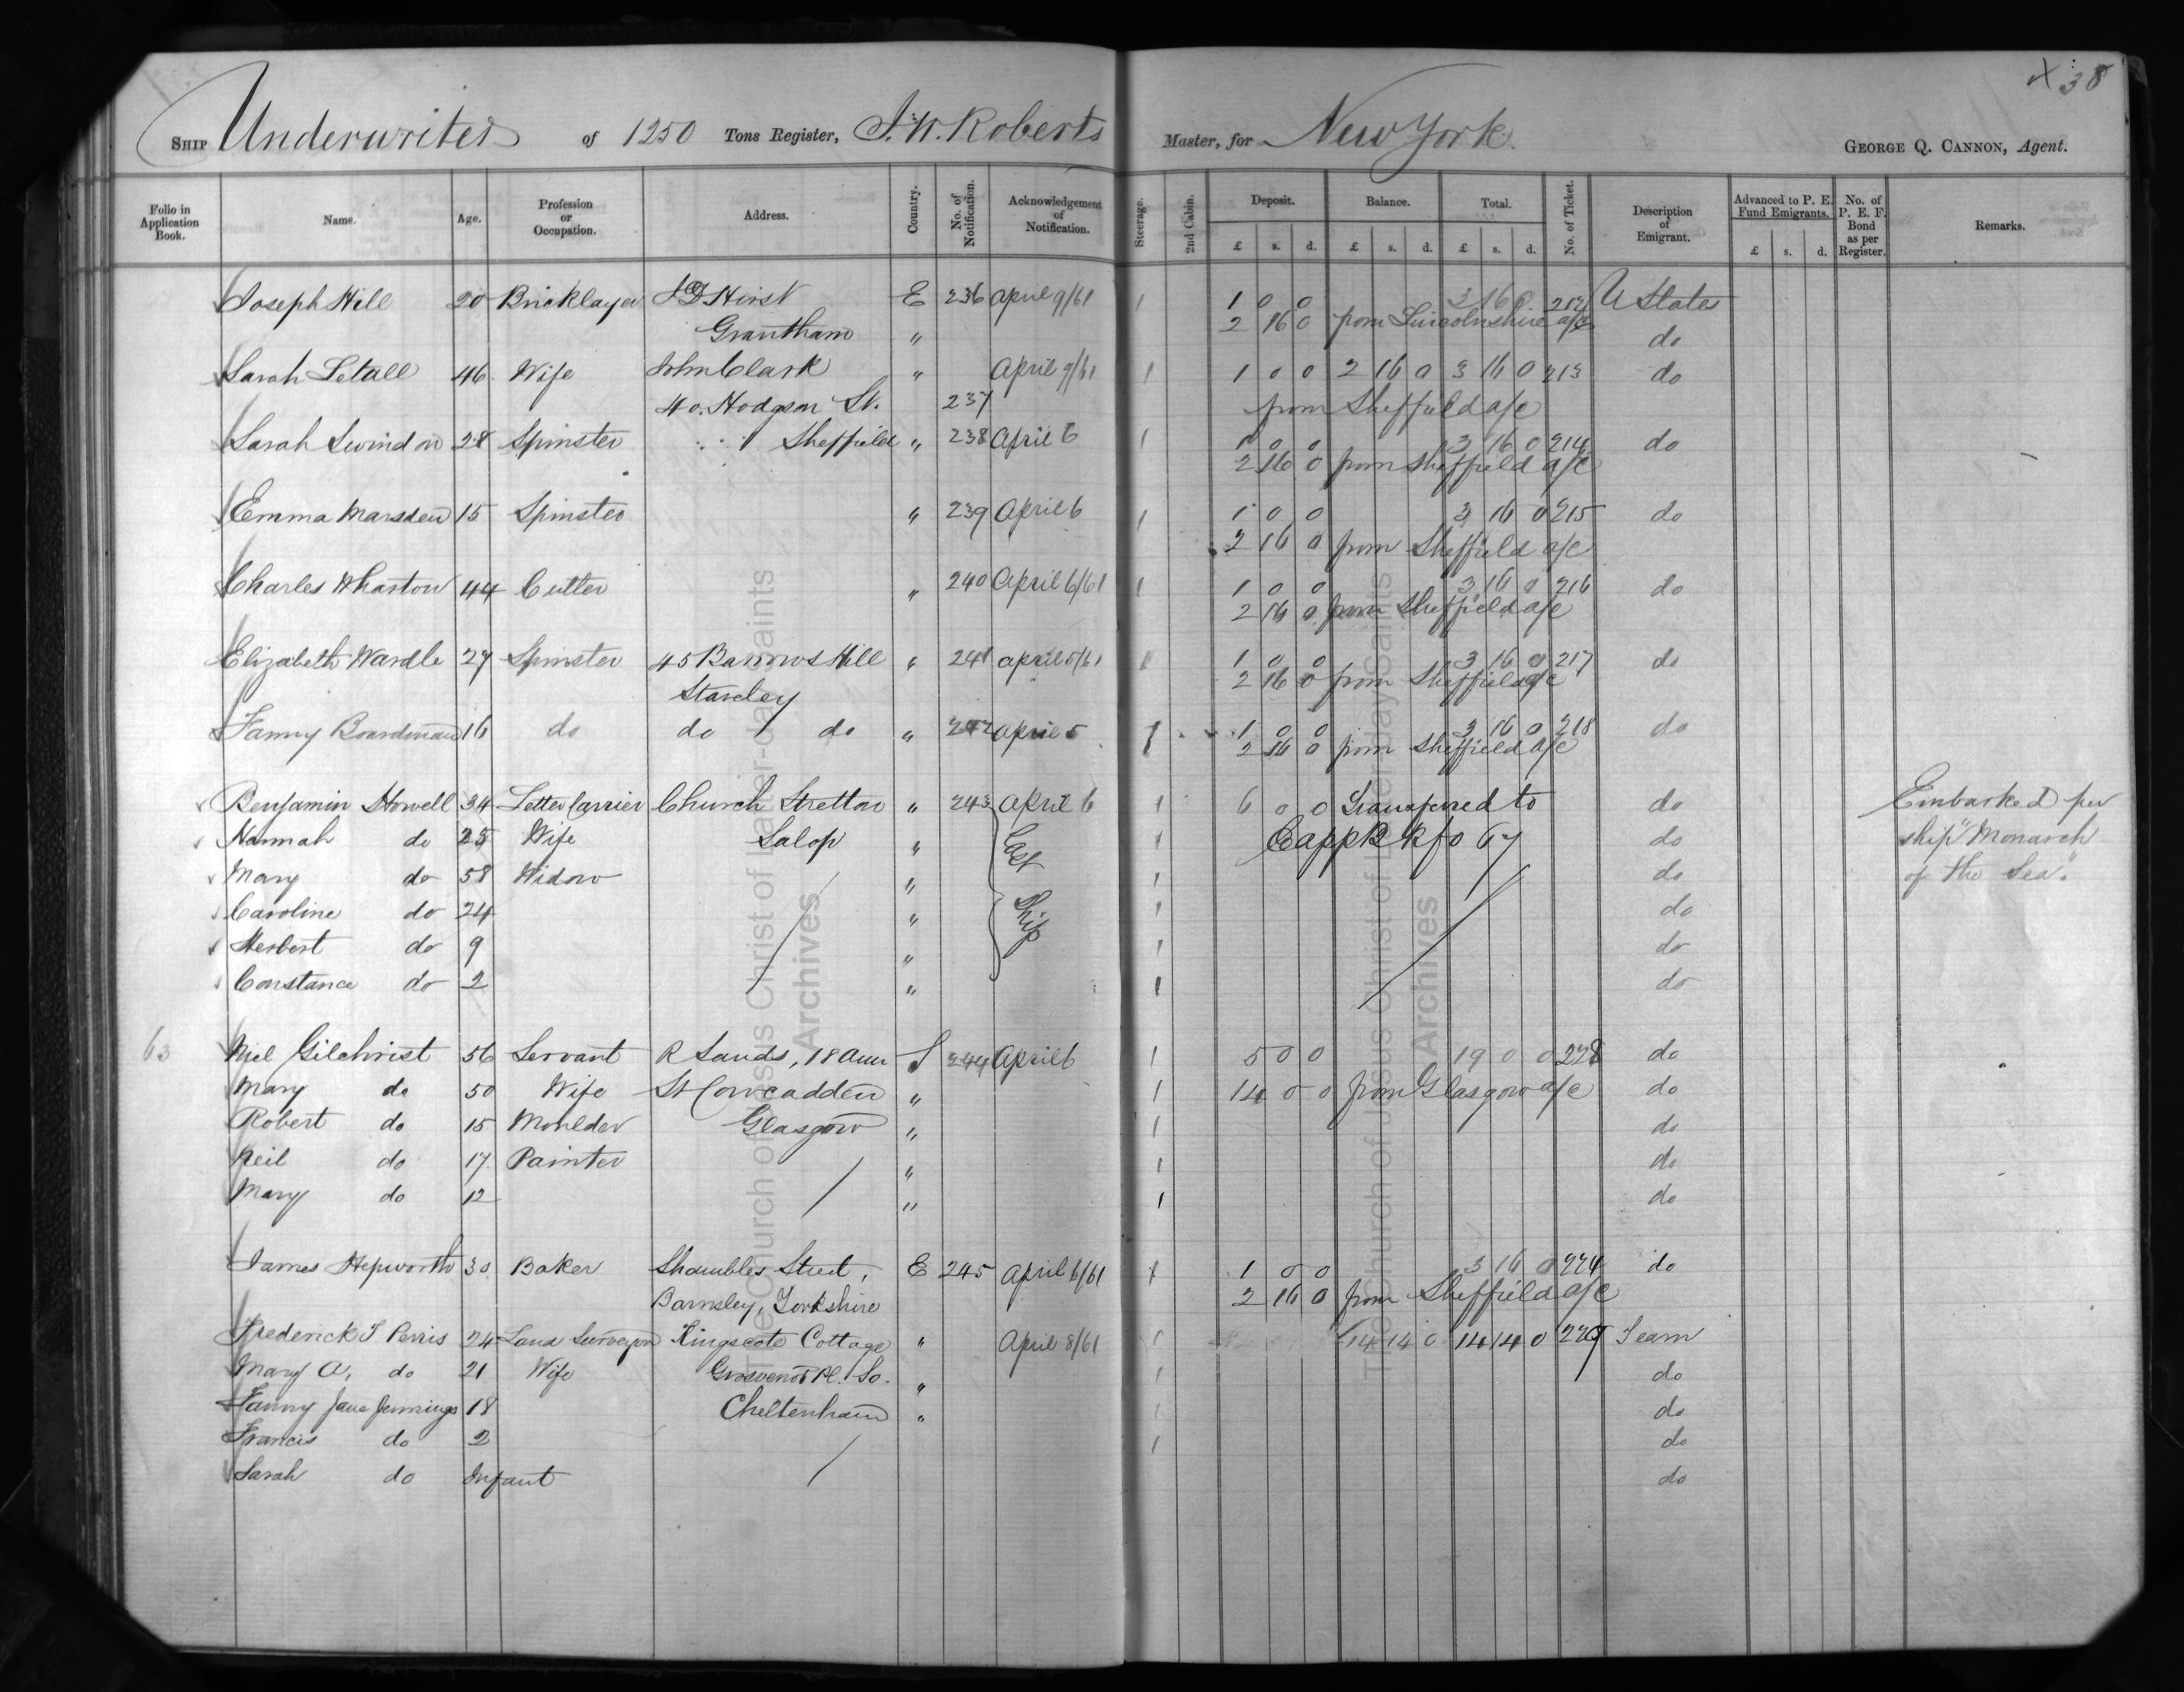 38
SHIP Underwriter of 1250 Tons Register, J. W. Roberts Master, for New York. GEORGE Q. CANNON, Agent.
Folio in Application Book. Name. Age. Profession or Occupation. Address. Country. No. of Notification. Acknowledgement of Notification. Steerage. 2nd Cabin. Deposit. Balance. Total. No. of Ticket. Description of Emigrant. Advanced to P. E. Fund Emigrants. No. of P. E. F. Bond as per Register. Remarks.
£ s. d. £ s. d. £ s. d. £ s. d.
Joseph Hill 20 Bricklayer Hirst E 236 April 9/61 1 1 0 0 3 16 0 212 U States
Grantham " 2 16 0 from Lincolnshire a/c do
Sarah Letall 46 Wife John Clark " April 9/61 1 1 0 0 2 16 0 3 16 0 213 do
40. Hodgson St. 237 from Sheffield a/c
Sarah Swindon 28 Spinster Sheffield " 238 April 6 1 1 0 0 3 16 0 214 do
2 16 0 from Sheffield a/c
Emma Marsden 15 Spinster " 239 April 6 1 1 0 0 3 16 0 215 do
2 16 0 from Sheffield a/c
Charles Wharton 44 Cutler " 240 April 6/61 1 1 0 0 3 16 0 216 do
2 16 0 from Sheffield a/c
Elizabeth Wardle 27 Spinster 45 Barrows Hill " 241 April 5/61 1 1 0 0 3 16 0 217 do
Staveley 2 16 0 from Sheffield a/c
Fanny Boardman 16 do do do " 242 April 5 1 1 0 0 3 16 0 218 do
2 16 0 from Sheffield a/c
Benjamin Howell 34 Letter Carrier Church Stretton " 243 April 6 1 6 0 0 Transferred to do Embarked per
Hannah do 25 Wife Salop " 1 fo 67 do ship "Monarch
Mary do 58 Widow " 1 do of the Sea."
Caroline do 24 " Ship 1 do
Herbert do 9 " 1 do
Constance do 2 " 1 do
63 Niel Gilchrist 56 Servant R Sands, 18 Ann S 244 April 6 1 5 0 0 19 0 0 do
Mary do 50 Wife St Cowcadden " 1 14 0 0 from Glasgow a/c do
Robert do 15 Moulder Glasgow " 1 do
Neil do 17 Painter " 1 do
Mary do 12 " 1 do
James Hepworth 30 Baker Shambles Street, E 245 April 6/61 1 1 0 0 3 16 0 224 do
Barnsley, Yorkshire 2 16 0 from Sheffield a/c
Frederick T Perris 24 Land Surveyor Kingscote Cottage " April 8/61 1 14 14 0 14 14 0 Team
Mary A. do 21 Wife Grosvenor Pl. So. " 1 do
Fanny Jane Jennings 18 Cheltenham " 1 do
Francis do 2 1 do
Sarah do Infant do
The Church of Jesus Christ of Latter-day Saints
Archives
The Church of Jesus Christ of Latter-day Saints
Archives